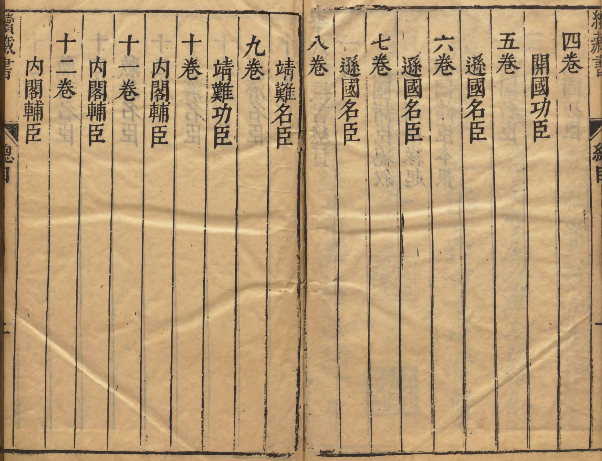 四卷
開國功臣
五卷
遜國名臣
六卷
遜國名臣
七卷
遜國名臣
八卷
靖難名臣
九卷
靖難功臣
十卷
內閣輔臣
十一卷
內閣輔臣
十二卷
內閣輔臣
續藏書
總目